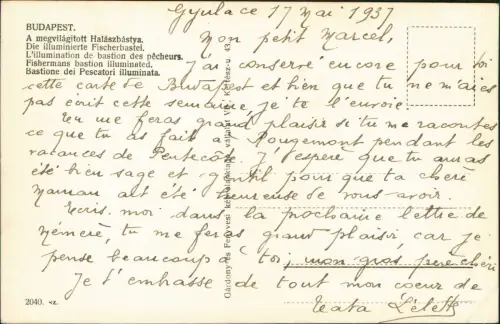 BUDAPEST.
A megvilágított Halászbástya.
Die illuminierte Fischerbastei.
L'illumination de bastion des pêcheurs.
Fishermans bastion illuminated.
Bastione dei Pescatori illuminata.
Gyulace 17 Mai 1937
Mon petit Marcel,
J'ai conservé encore pour toi
cette carte de Budapest et bien que tu ne m'aies
pas écrit cette semaine je te l'envoie.
Tu me feras grand plaisir si tu me racontes
ce que tu as fait à Rougemont pendant les
vacances de Pentecôte. J'espère que tu auras
été bien sage et gentil pour que ta chère
Maman ait été heureuse de vous avoir.
Ecris-moi dans la prochaine lettre de
Mémère, tu me feras grand plaisir, car je
pense beaucoup à toi, mon gros chéri
Je t'embrasse de tout mon coeur de
Tata
2040. sz.